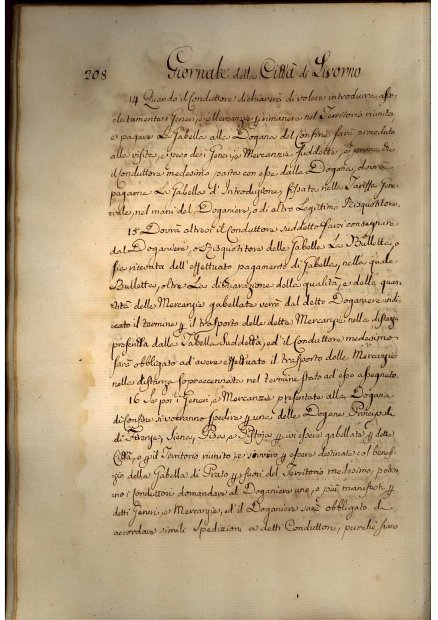 208 Giornale della Città di Livorno
14 Quando il Conduttore dichiarerà di volere introdurre asso-
lutamente i Generi, e Mercanzie, e rimanere nel Territorio riunito
e pagare La Gabella alle Dogana del Confine sarà proceduto
alla visita, e peso dei Generi, e Mercanzie Suddette, e prima che
il Conduttore medesimo parta con esse dalla Dogana, dovrà
pagarne La Gabella d'Introduzione, fissata nella Tariffa Gene-
rale, nel mani del Doganiere, o di altro Legittimo Risquotitore.
15 Dovrà altresì il Conduttore suddetto farsi consegnare
dal Doganiere, o Risquotitore delle Gabelle La Bulletta, o
sia ricevuta dell'effettuato pagamento di Gabella, nella quale
Bulletta, oltre La dichiarazione della qualità, e delle quan-
tità delle Mercanzie gabellate verrà dal detto Doganiere indi-
cato il termine p il trasporto delle dette Mercanzie nella distanza
prefissa dalla Tabella Suddetta, ed il Conduttore medesimo
sarà obbligato ad avere effettuato il trasporto delle Mercanzie
nella distanza sopraccennata nel termine stato ad esso assegnato.
16 Se poi i Generi, e Mercanzie presentate alla Dogana
di Confine si vorranno spedire p una delle Dogane Principali
di Firenze, Siena, Pisa, e Pistoja p ivi essere gabellate p dette
Città, o p il Territorio riunito, e ovvero p essere destinate col benefi-
zio della Gabella di Prato p fuori del Territorio medesimo, potran-
no i Conduttori domandare al Doganiere uno, o più manifesti p
detti Generi, e Mercanzie, ed il Doganiere sarà obbligato di
accordare simili spedizioni a detti Conduttori, purchè siano